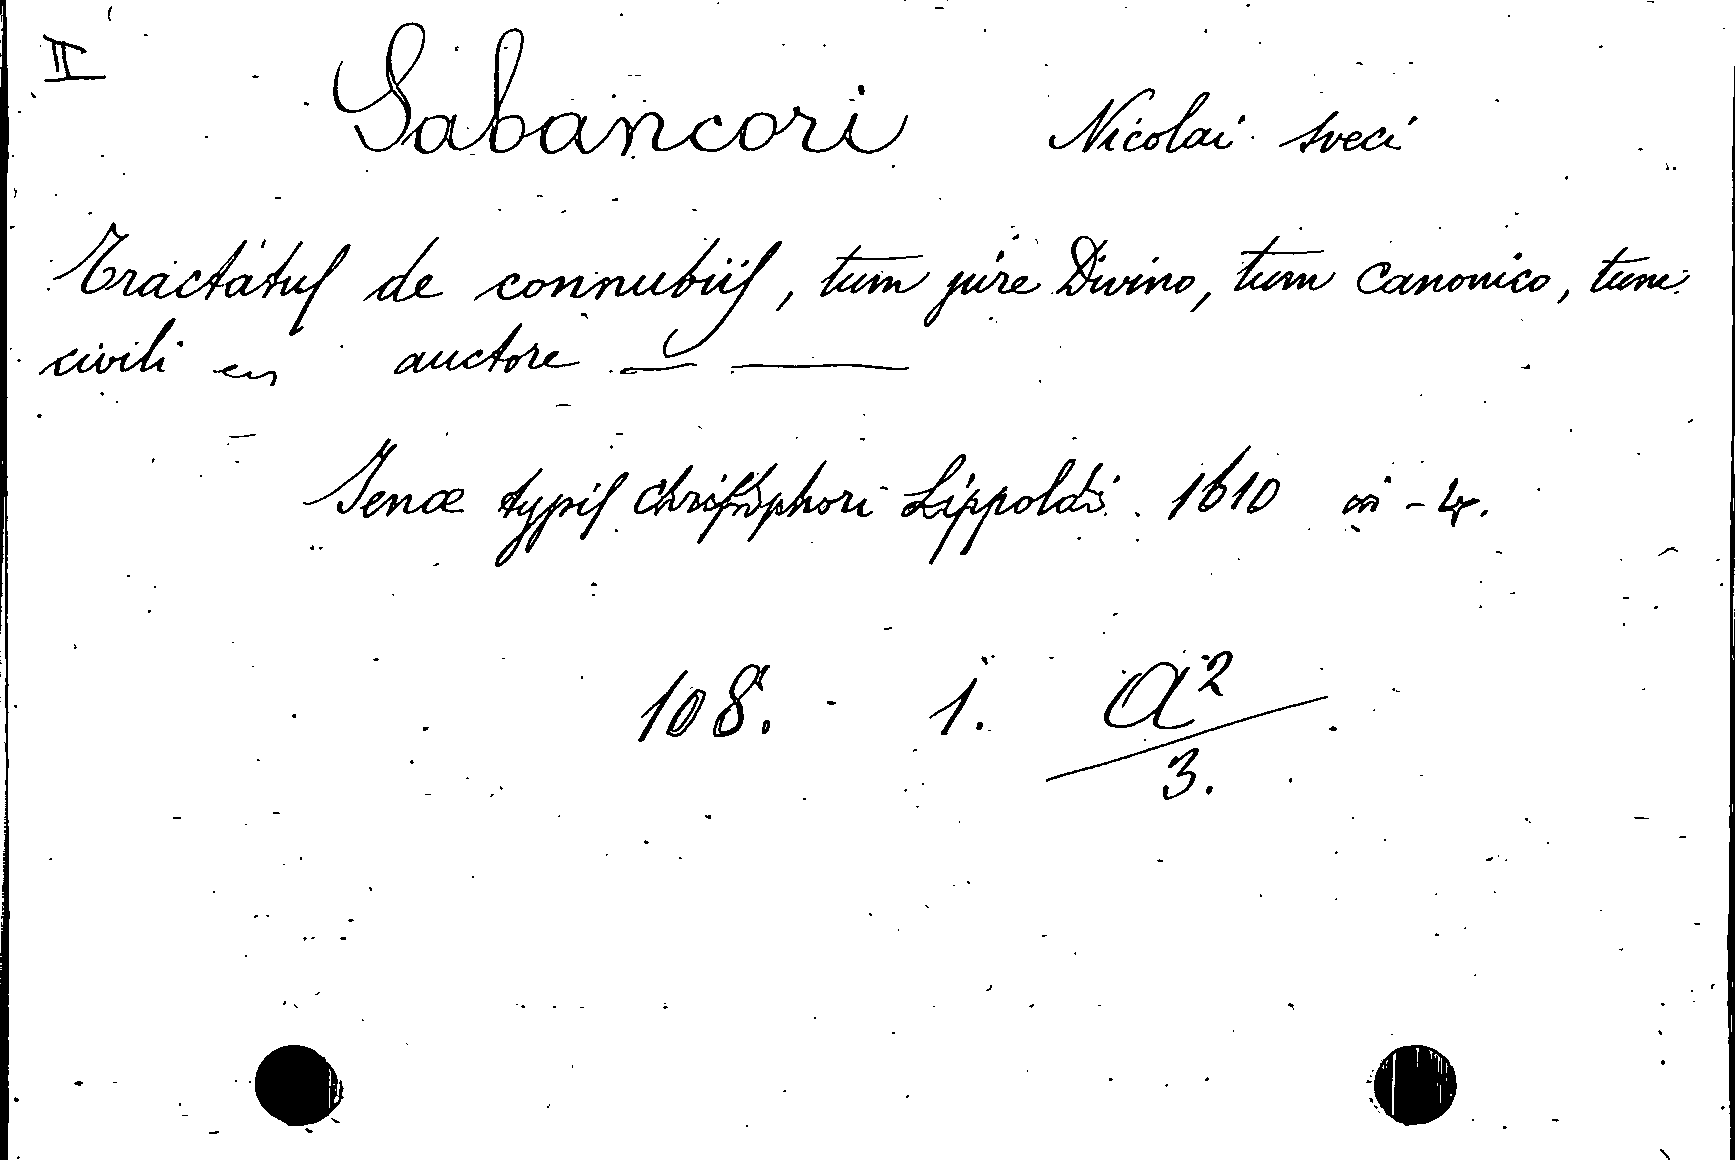 II
Sabancori Nicolai sveci
Tractatus de connubiis, tum jure Divino, tum canonico, tum
civili auctore — —
Jenæ typis Christophori Lippoldi 1610 in-4.
108. 1. A²/3.